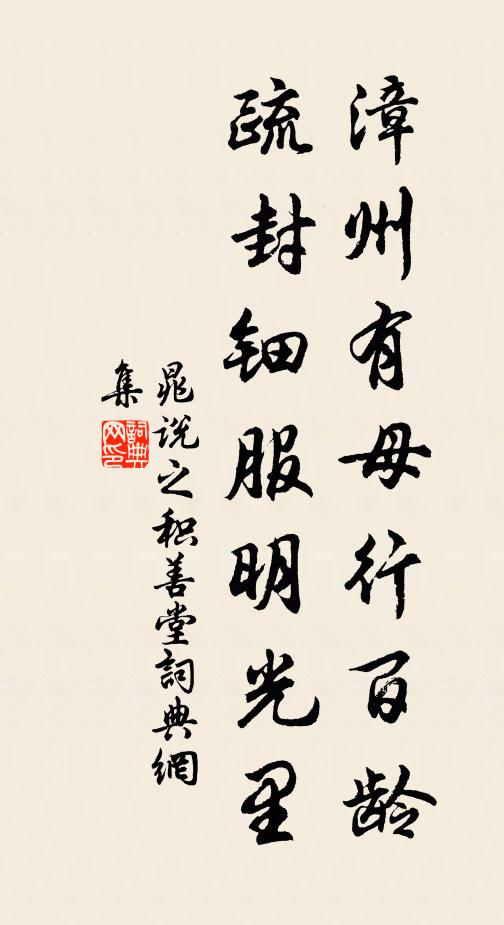 漳州有母行百龄
疏封钿服明光里
晁说之积善堂詞典網
集
詞典
网印